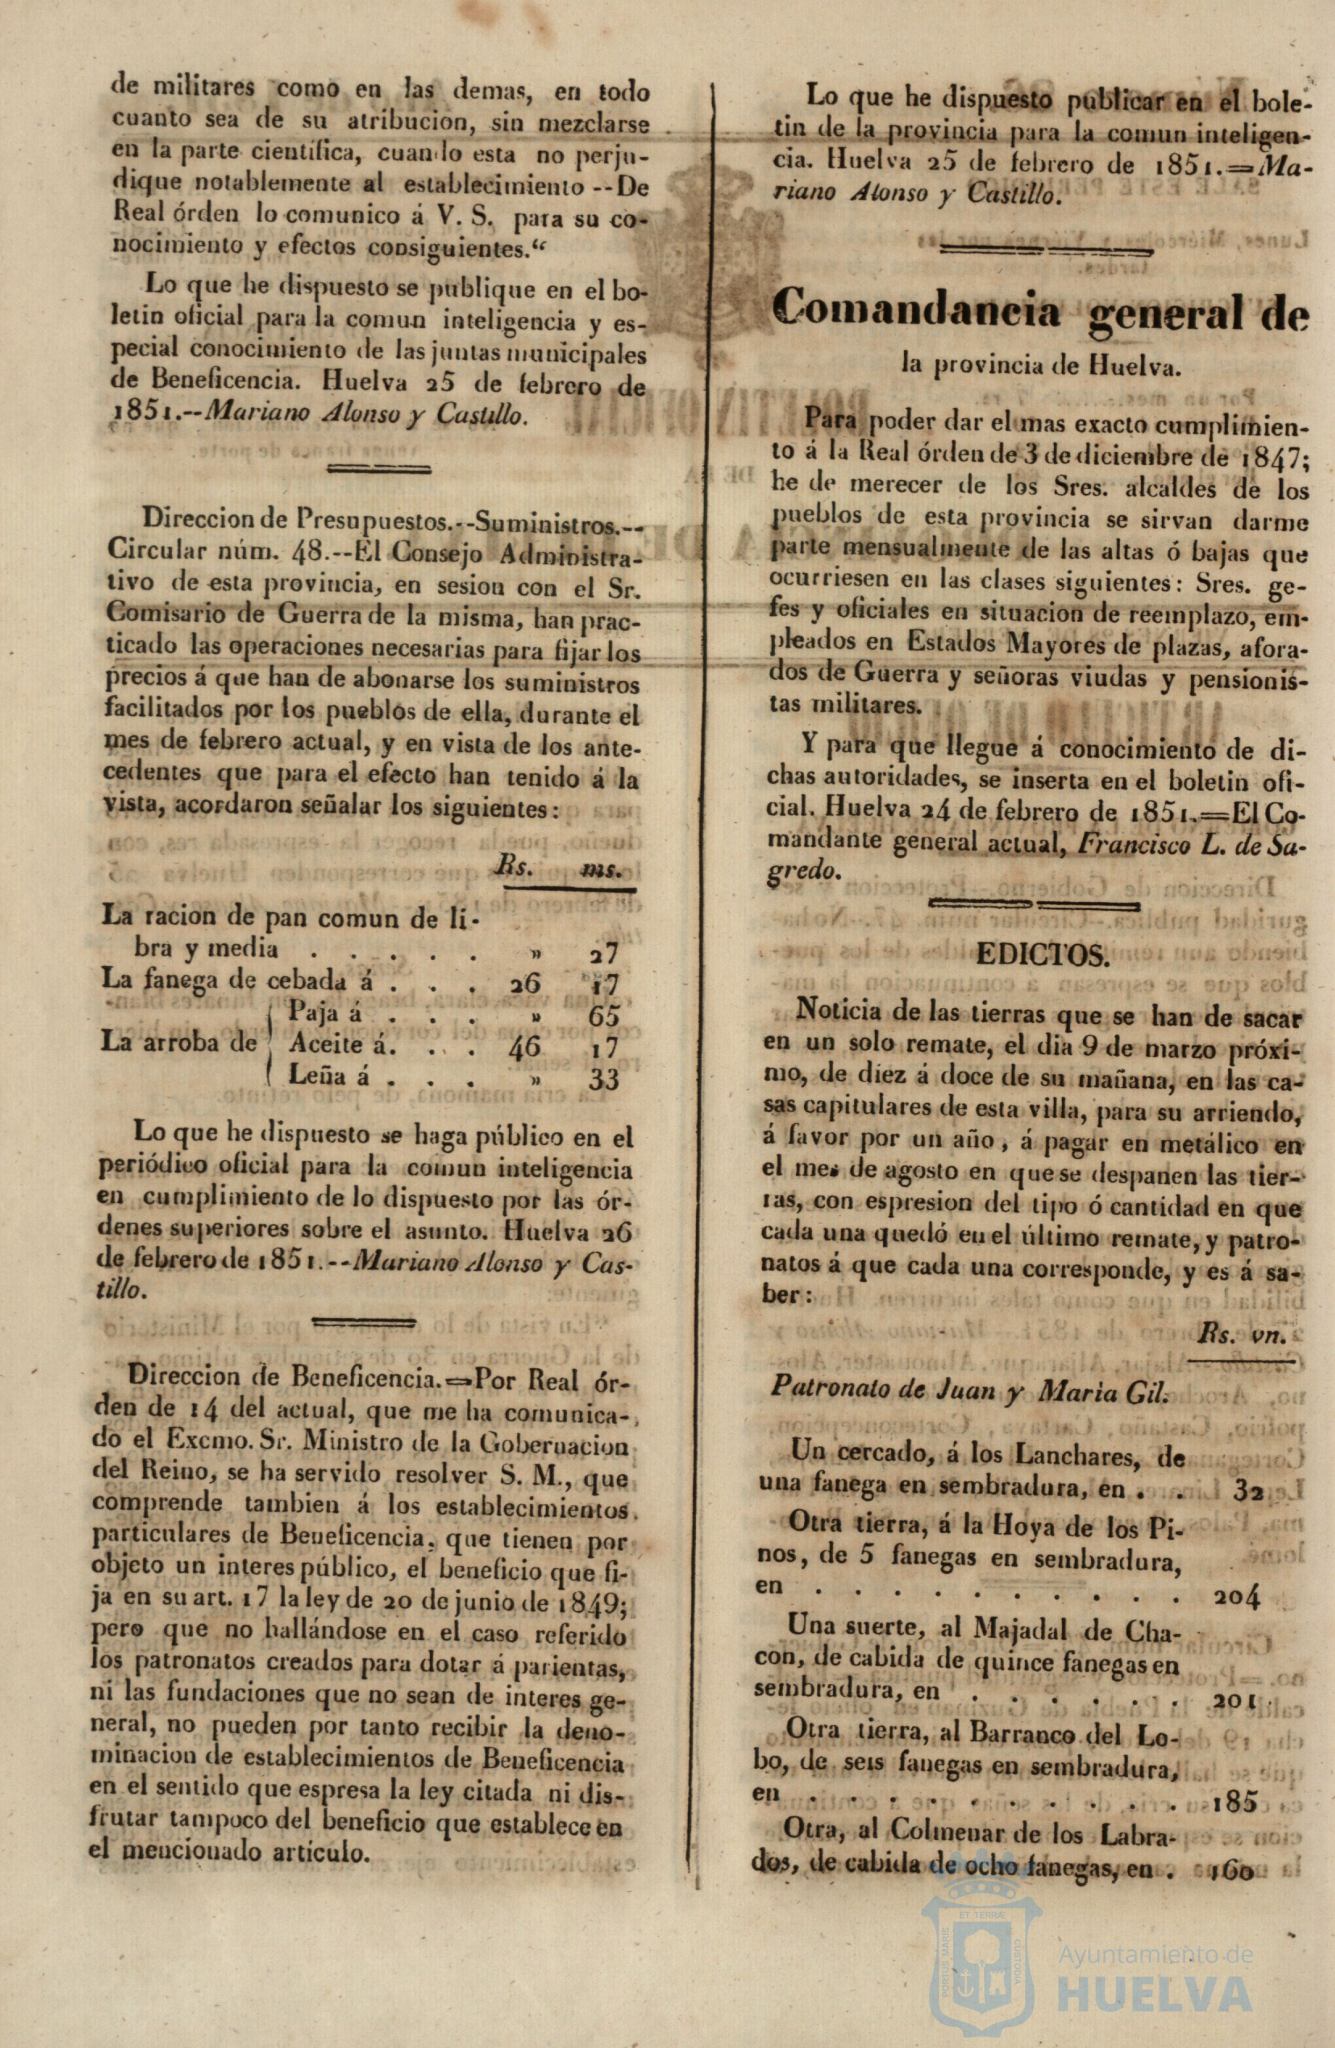 de militares como en las demas, en todo
cuanto sea de su atribucion, sin mezclarse
en la parte cientifica, cuando esta no perju-
dique notablemente al establecimiento--De
Real órden lo comunico á V. S. para su co-
nocimiento y efectos consiguientes.“
Lo que he dispuesto se publique en el bo-
letin oficial para la comun inteligencia y es-
pecial conocimiento de las juntas municipales
de Beneficencia. Huelva 25 de febrero de
1851.--Mariano Alonso y Castillo.
Direccion de Presupuestos.--Suministros.--
Circular núm. 48.--El Consejo Administra-
tivo de esta provincia, en sesion con el Sr.
Comisario de Guerra de la misma, han prac-
ticado las operaciones necesarias para fijar los
precios á que han de abonarse los suministros
facilitados por los pueblos de ella, durante el
mes de febrero actual, y en vista de los ante-
cedentes que para el efecto han tenido á la
vista, acordaron señalar los siguientes:
Rs. ms.
La racion de pan comun de li-
bra y media . . . . . » 27
La fanega de cebada á . . . 26 17
Paja á . . . » 65
La arroba de Aceite á. . . . 46 17
Leña á . . . » 33
Lo que he dispuesto se haga público en el
periódico oficial para la comun inteligencia
en cumplimiento de lo dispuesto por las ór-
denes superiores sobre el asunto. Huelva 26
de febrero de 1851.--Mariano Alonso y Cas-
tillo.
Direccion de Beneficencia.=Por Real ór-
den de 14 del actual, que me ha comunica-
do el Excmo. Sr. Ministro de la Gobernacion
del Reino, se ha servido resolver S. M., que
comprende tambien á los establecimientos
particulares de Beneficencia, que tienen por
objeto un interes público, el beneficio que fi-
ja en su art. 17 la ley de 20 de junio de 1849;
pero que no hallándose en el caso referido
los patronatos creados para dotar á parientas,
ni las fundaciones que no sean de interes ge-
neral, no pueden por tanto recibir la deno-
minacion de establecimientos de Beneficencia
en el sentido que espresa la ley citada ni dis-
frutar tampoco del beneficio que establece en
el mencionado artículo.
Lo que he dispuesto publicar en el bole-
tin de la provincia para la comun inteligen-
cia. Huelva 25 de febrero de 1851.=Ma-
riano Alonso y Castillo.
Comandancia general de
la provincia de Huelva.
Para poder dar el mas exacto cumplimien-
to á la Real órden de 3 de diciembre de 1847;
he de merecer de los Sres. alcaldes de los
pueblos de esta provincia se sirvan darme
parte mensualmente de las altas ó bajas que
ocurriesen en las clases siguientes: Sres. ge-
fes y oficiales en situacion de reemplazo, em-
pleados en Estados Mayores de plazas, afora-
dos de Guerra y señoras viudas y pensionis-
tas militares.
Y para que llegue á conocimiento de di-
chas autoridades, se inserta en el boletin ofi-
cial. Huelva 24 de febrero de 1851.=El Co-
mandante general actual, Francisco L. de Sa-
gredo.
EDICTOS.
Noticia de las tierras que se han de sacar
en un solo remate, el dia 9 de marzo próxi-
mo, de diez á doce de su mañana, en las ca-
sas capitulares de esta villa, para su arriendo,
á favor por un año, á pagar en metálico en
el mes de agosto en que se despanen las tier-
ras, con espresion del tipo ó cantidad en que
cada una quedó en el último remate, y patro-
natos á que cada una corresponde, y es á sa-
ber:
Rs. vn.
Patronato de Juan y Maria Gil.
Un cercado, á los Lanchares, de
una fanega en sembradura, en . . 32
Otra tierra, á la Hoya de los Pi-
nos, de 5 fanegas en sembradura,
en . . . . . . . . . . 204
Una suerte, al Majadal de Cha-
con, de cabida de quince fanegas en
sembradura, en . . . . . . 201
Otra tierra, al Barranco del Lo-
bo, de seis fanegas en sembradura,
en . . . . . . . . . . 185
Otra, al Colmenar de los Labra-
dos, de cabida de ocho fanegas, en . 160
ET TERRÆ
PORTUS MARIS
CUSTODIA
Ayuntamiento de
HUELVA